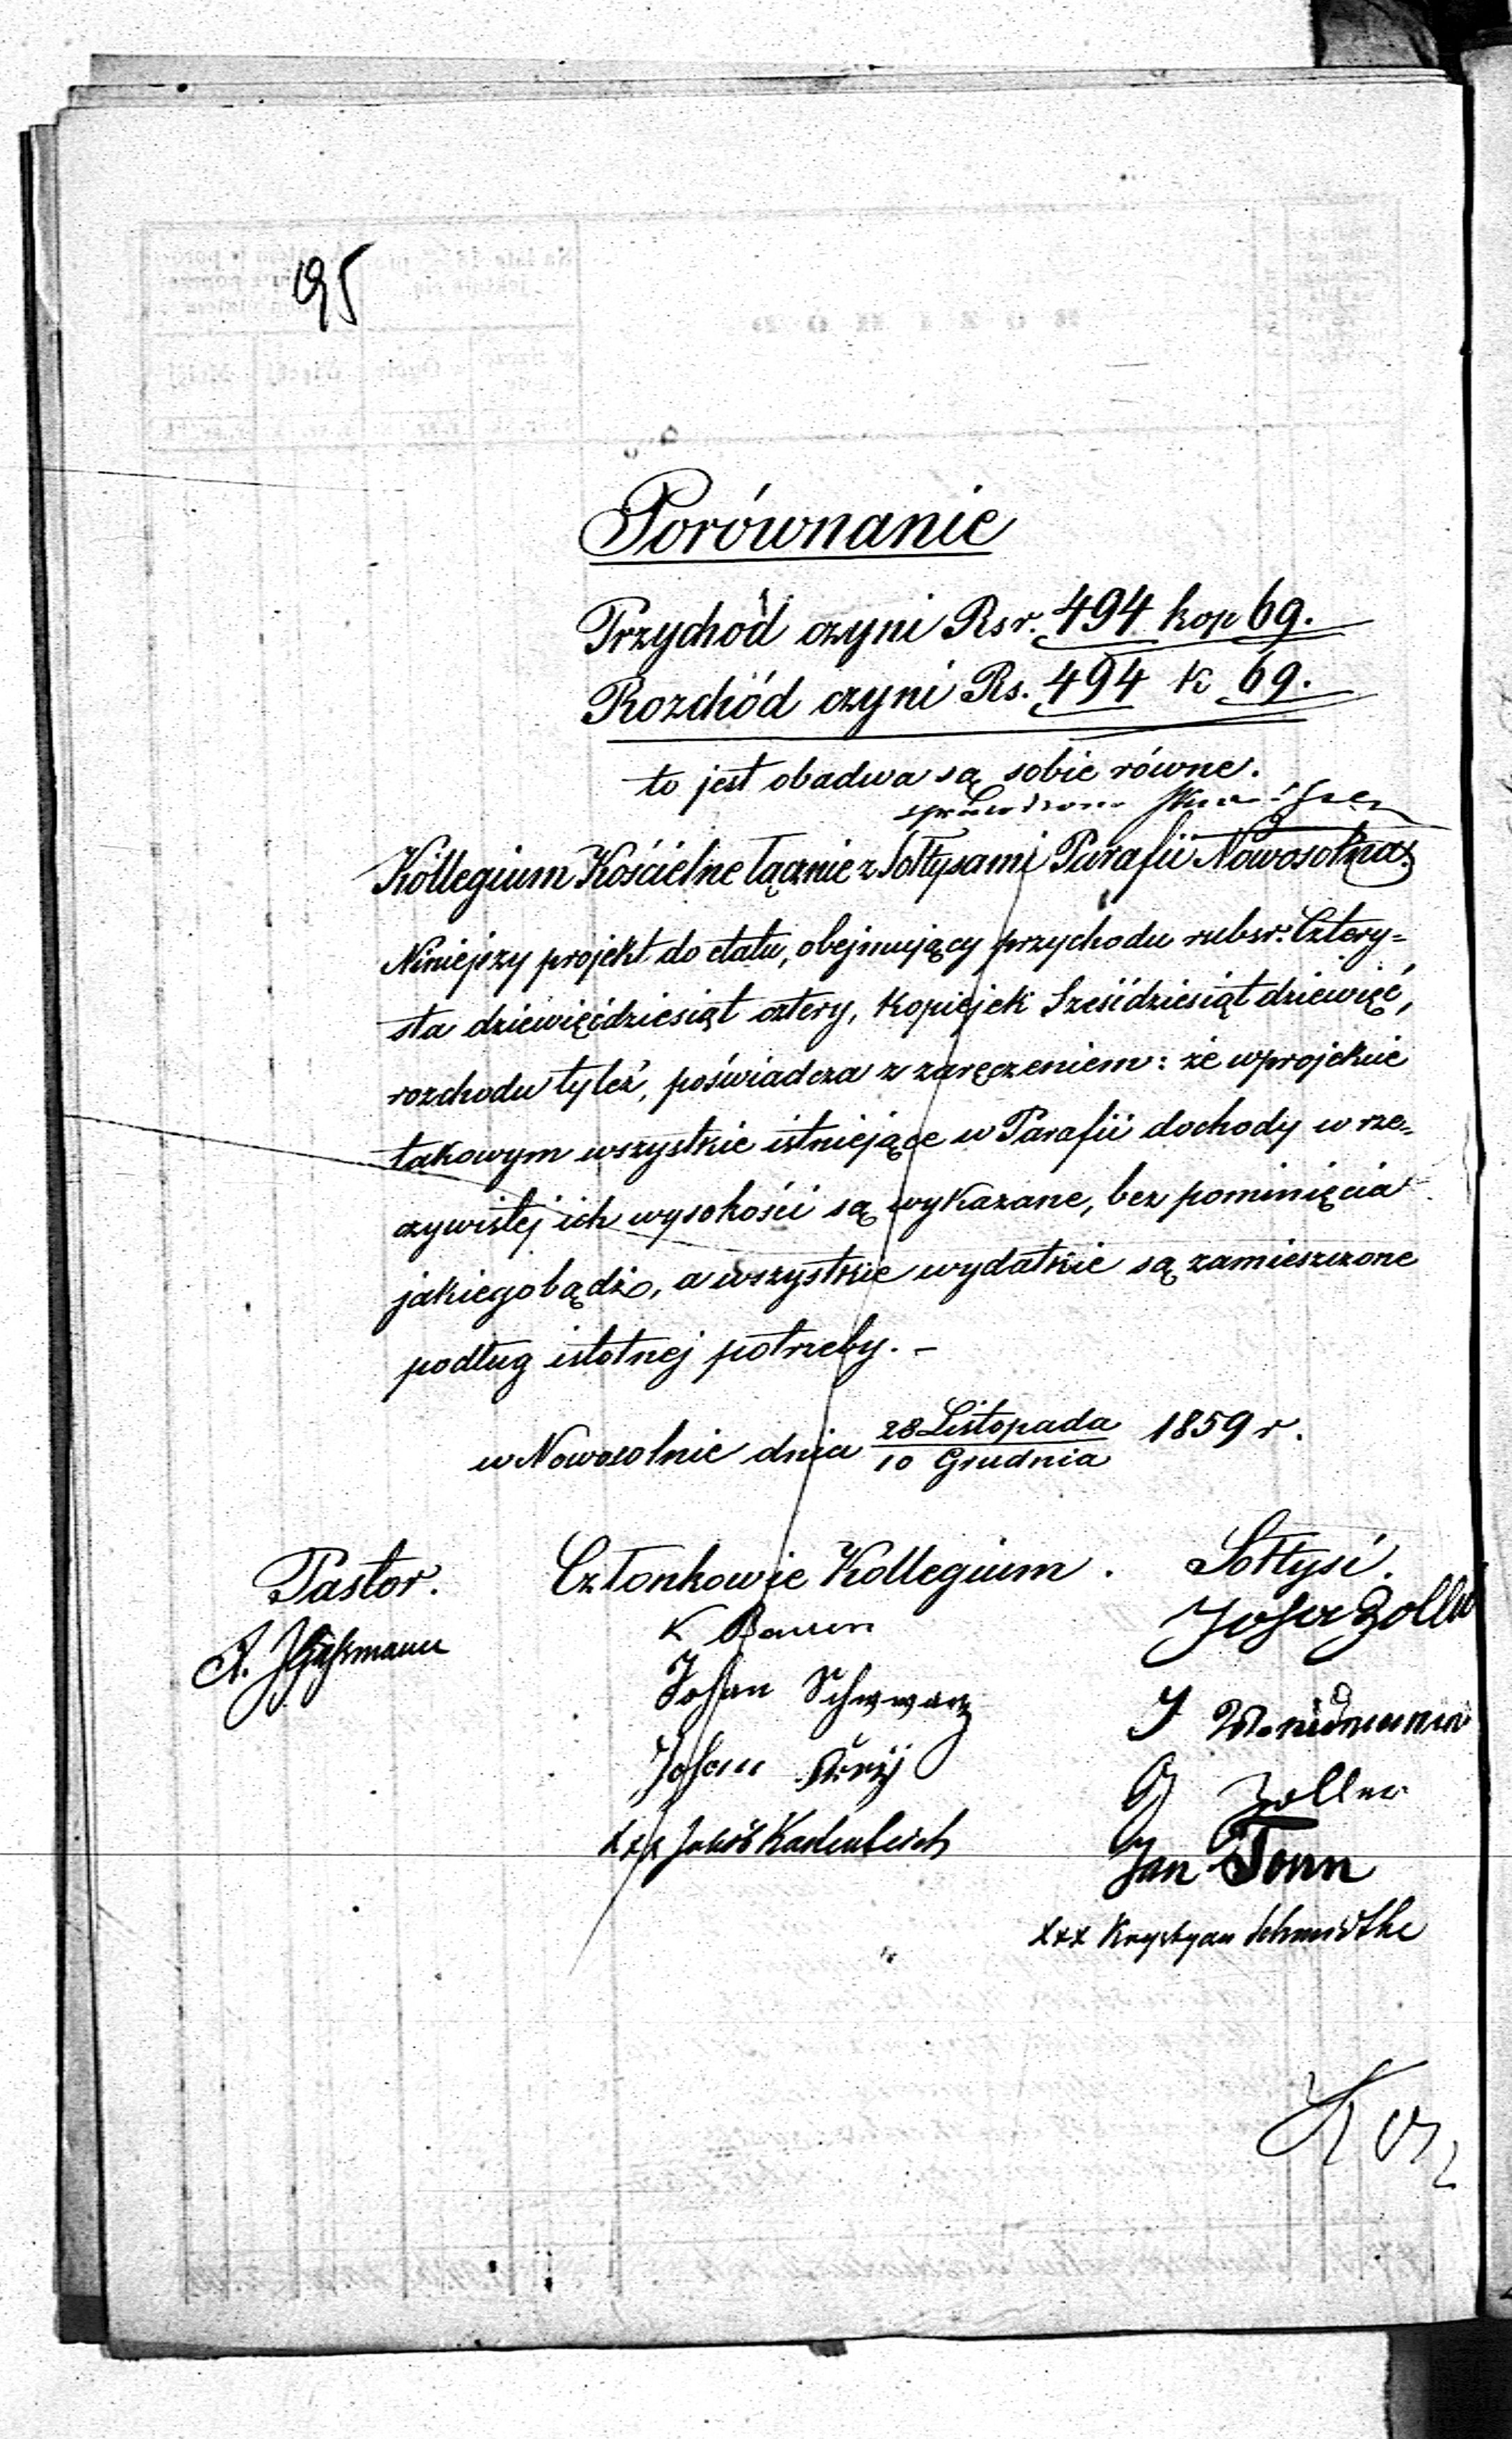 195
Porównanie
Przychód czyni Rsr. 494 kop 69.
Rozchód czyni Rs. 494 k 69.
to jest obadwa są sobie równe.
Kollegium Kościelne łącznie z Sołtysami Parafii Nowosolna.
Niniejszy projekt do etatu, obejmujący przychodu rubsr. Cztery=
sta dziewięćdziesiąt cztery, kopiejek Sześćdziesiąt dziewięć,
rozchodu tyleż, poświadcza z zaręczeniem: że w projekcie
takowym wszystkie istniejące w Parafii dochody w rze=
czywistej ich wysokości są wykazane, bez pominięcia
jakiegobądź, a wszystkie wydatkie są zamieszczone
podług istotnej potrzeby. –
w Nowosolnie dnia 28 Listopada / 10 Grudnia 1859 r.
Pastor. Członkowie Kollegium. Sołtysi.
K Baum
Johan Schwwarz
Johann
J
G Zoller
xxx Jakób
Jan Tonn
xxx Krystyan Schmidtke